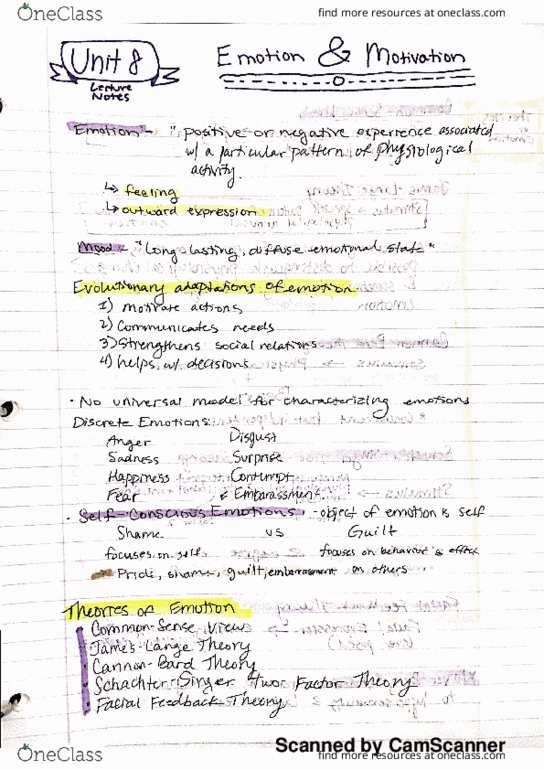 OneClass
find more resources at oneclass.com
Unit 8
Lecture
Notes
Emotion & Motivation
Emotion - "positive or negative experience associated
w/ a particular pattern of physiological
activity.
↳ feeling
↳ outward expression
Mood - "Long lasting, diffuse emotional state"
Evolutionary adaptations of emotion
1) motivate actions
2) Communicates needs
3) Strengthens social relations
4) helps w/ decisions
• No universal model for characterizing emotions
Discrete Emotions:
Anger Disgust
Sadness Surprise
Happiness Contempt
Fear Embarassment
• Self-Conscious Emotions - object of emotion is self
Shame vs Guilt
focuses on self focuses on behavior's effect
Pride, shame, guilt, embarrassment on others
Theories of Emotion
Common-Sense View
James-Lange Theory
Cannon-Bard Theory
Schachter-Singer Two Factor Theory
Facial Feedback Theory
Scanned by CamScanner
OneClass
find more resources at oneclass.com